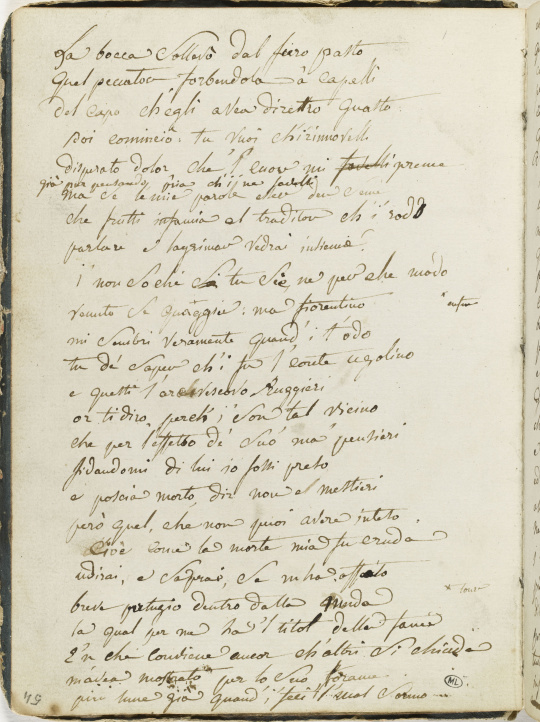 La bocca sollevò dal fiero pasto
quel peccator forbendola à capelli
del capo ch'egli avea diretro guasto.
Poi cominciò: tu vuoi ch'i rinnovelli
disperato dolor che 'l cuor mi favelli preme
già pur pensando, pria ch'i ne favelli
ma se le mie parole esser den seme
che frutti infamia al traditor ch'i rodo
parlare e lagrimar vedrai insieme.
I' non so chi tu sie, ne per che modo
venuto se quaggiù: ma fiorentino
mi sembri veramente quand' i t'odo
tu dé saper ch'i fu 'l conte ugolino
e questi l'arcivescovo Ruggieri
or ti dirò perch' i son tal vicino
che per l'effetto de' suo' ma' pensieri
fidandomi di lui io fossi preso
e poscia morto, dir non è mestieri
però quel, che non puoi avere inteso,
Cioè come la morte mia fu cruda
udirai, e saprai, se m'ha offeso
breve pertugio dentro dalla muda
la qual per me ha 'l titol della fame
E'n che conviene ancor ch'altri si chiuda
m'avea mostrato per lo suo forame
più lune già quand' i feci 'l mal sonno
ML